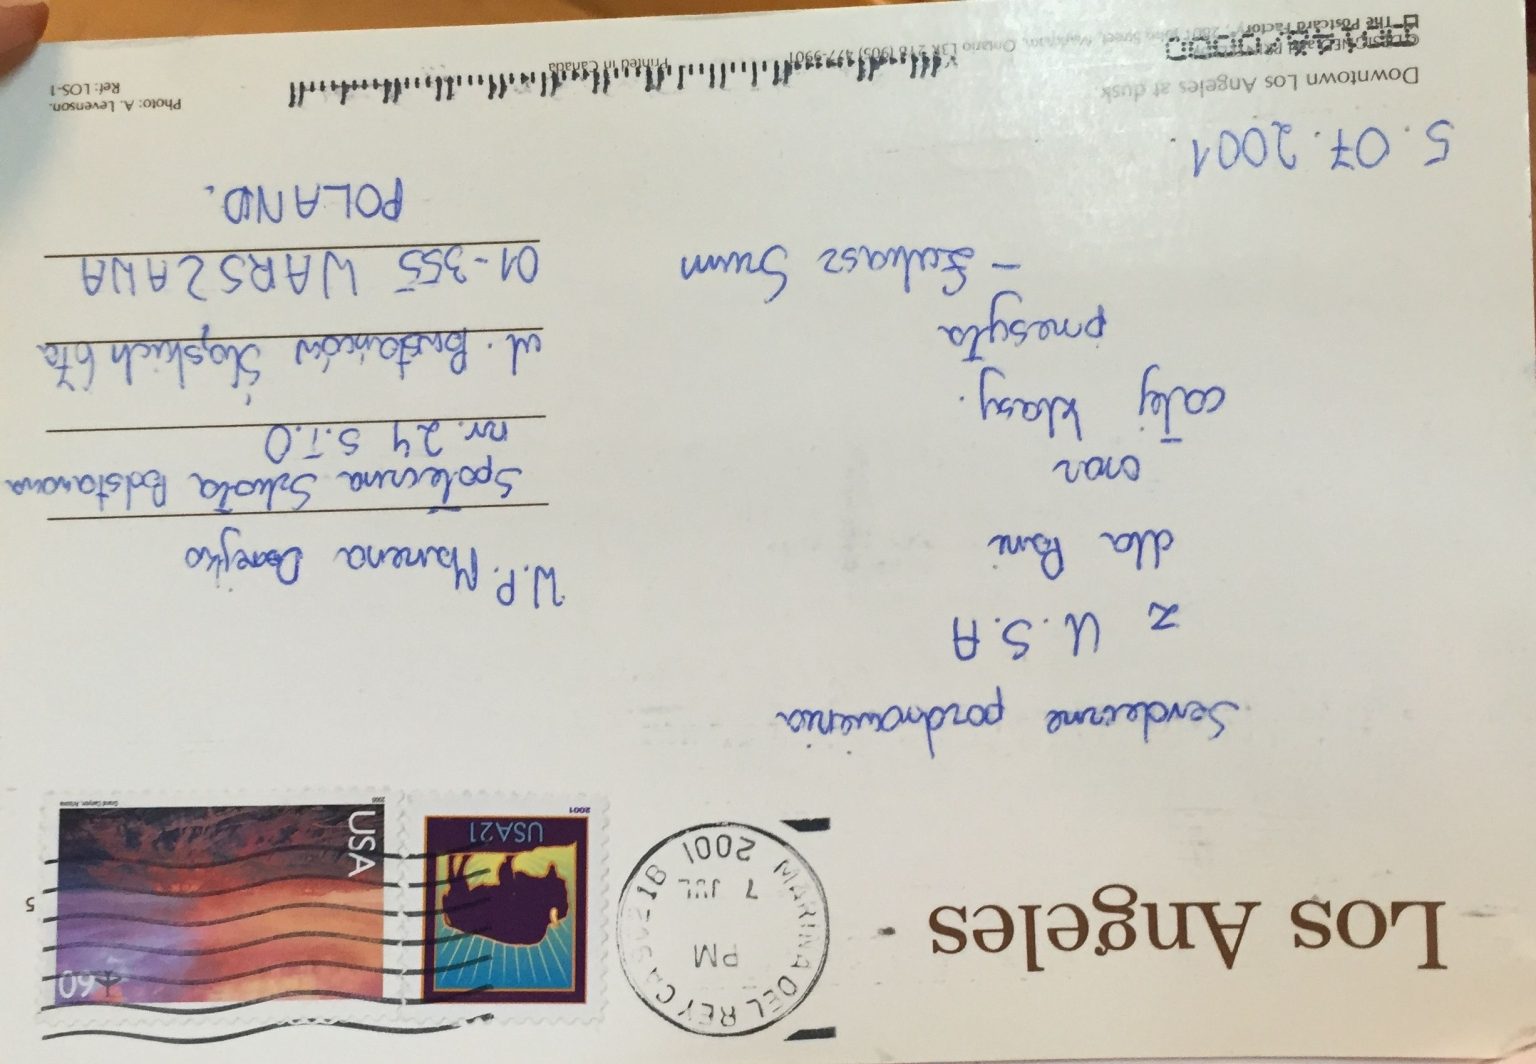 Los Angeles
MARINA DEL REY CA
PM
7 JUL
2001
USA21
2001
60
USA
Grand Canyon, Arizona
5
Serdeczne pozdrowienia
z U.S.A
dla Pani
oraz
całej klasy.
przesyła
– Łukasz
5.07.2001.
W.P. Marzena
Społeczna Szkoła Podstawowa
nr. 24 S.T.O
ul. Powstańców Śląskich 67a
01-355 WARSZAWA
POLAND.
Downtown Los Angeles at dusk.
The Postcard Factory
Ontario L3R (905) 477-9901
Printed in Canada
Photo: A. Levenson.
Ref: LOS-1